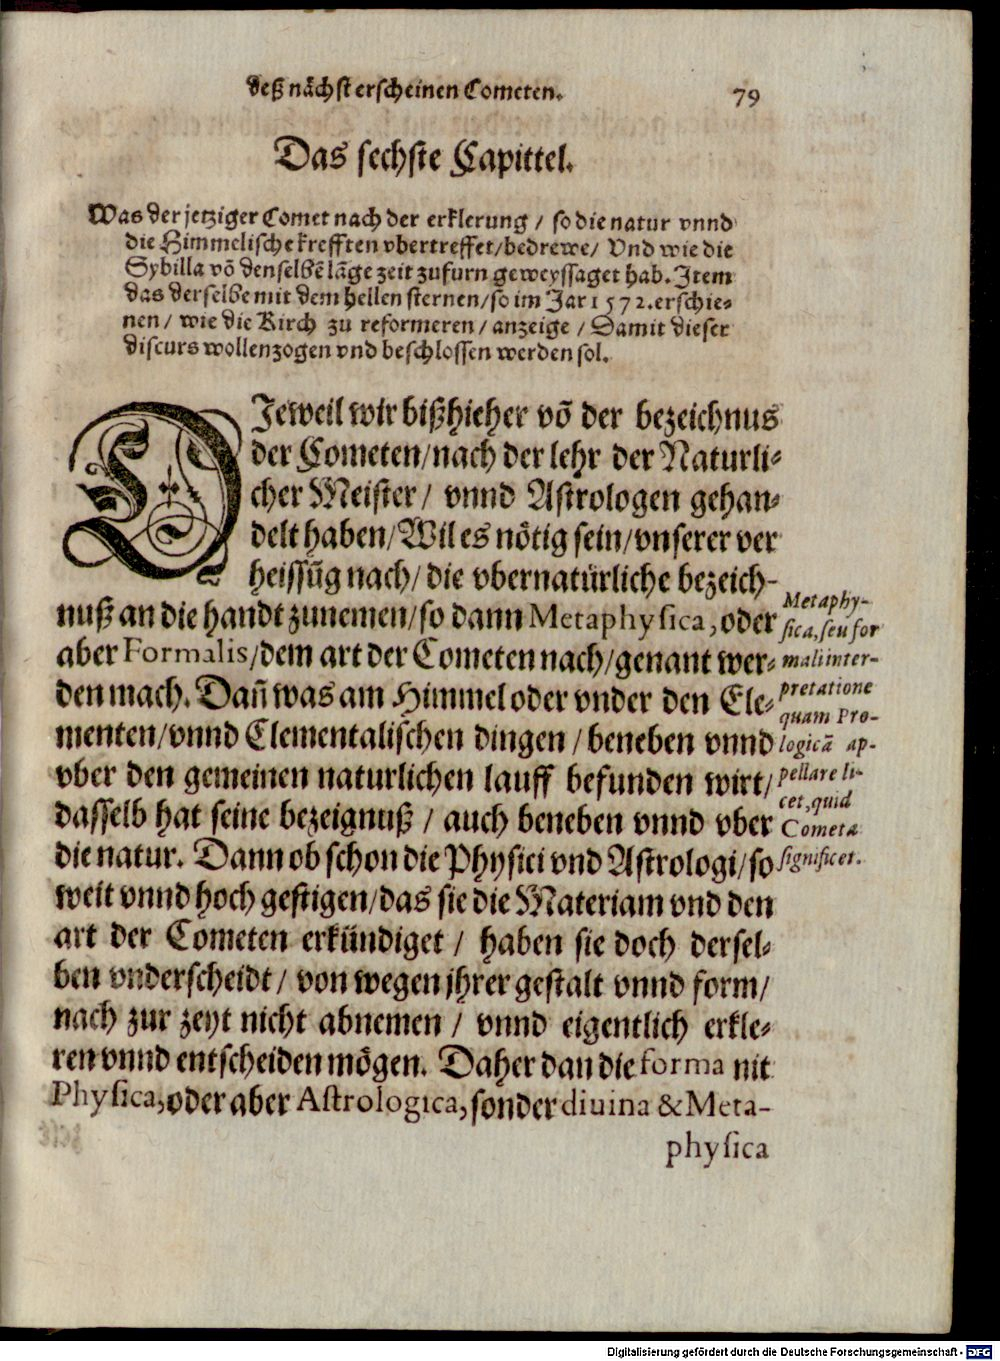 deß nächst erscheinen Cometen. 79
Das sechste Capittel.
Was der jetziger Comet nach der erklerung / so die natur vnnd
die Himmelische krefften vbertreffet/bedrewe/ Vnd wie die
Sybilla võ denselbẽ lãge zeit zufurn geweyssaget hab. Item
das derselbe mit dem hellen sternen/so im Jar 1572. erschie-
nen / wie die Kirch zu reformeren / anzeige / Damit dieser
discurs wollenzogen vnd beschlossen werden sol.
DJeweil wir bißhieher võ der bezeichnus
der Cometen/nach der lehr der Naturli-
cher Meister / vnnd Astrologen gehan-
delt haben/Wil es nötig sein/vnserer ver
heissũg nach/ die vbernatürliche bezeich-
nuß an die handt zunemen/so dann Metaphysica, oder
aber Formalis/dem art der Cometen nach/genant wer-
den mach. Dañ was am Himmel oder vnder den Ele-
menten/vnnd Elementalischen dingen / beneben vnnd
vber den gemeinen naturlichen lauff befunden wirt/
dasselb hat seine bezeignuß / auch beneben vnnd vber
die natur. Dann ob schon die Physici vnd Astrologi/so
weit vnnd hoch gestigen/das sie die Materiam vnd den
art der Cometen erkündiget / haben sie doch dersel-
ben vnderscheidt / von wegen jhrer gestalt vnnd form/
nach zur zeyt nicht abnemen / vnnd eigentlich erkle-
ren vnnd entscheiden mögen. Daher dan die forma nit
Physica, oder aber Astrologica, sonder diuina & Meta-
physica
Metaphy-
sica, seu for
mali inter-
pretatione
quam Pro-
logicã ap-
pellare li-
cet, quid
Cometa
significet.
Digitalisierung gefördert durch die Deutsche Forschungsgemeinschaft - DFG